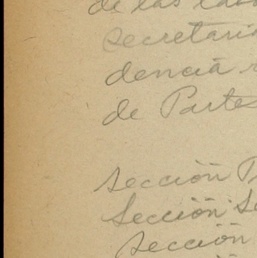 de las
secretari
dencia
de Partes
sección
sección
sección